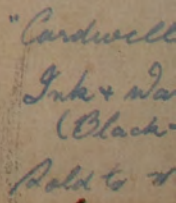 "Cardwell
Ink + Wa
(Black-
Sold to